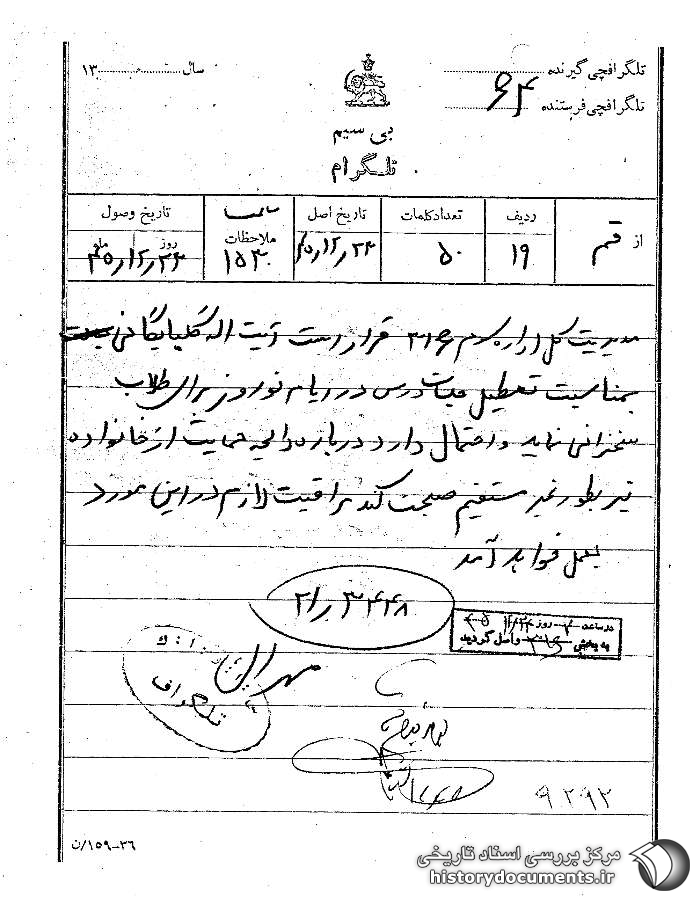 تلگرافچی گیرنده
سال ۱۳
تلگرافچی فرستنده ۶۴
بی سیم
تلگرام
از قم
ردیف ۱۹
تعداد کلمات ۵۰
تاریخ اصل ۴۵/۱۲/۲۴
ملاحظات ۱۵۳۰
تاریخ وصول
روز ماه
۴۵/۱۲/۲۴
مدیریت کل اداره سوم ۳۱۶ قرار است آیت اله گلپایگانی
بمناسبت تعطیل جلسات درس در ایام نوروز برای طلاب
سخنرانی نماید و احتمال دارد درباره لایحه حمایت از خانواده
نیز بطور غیر مستقیم صحبت کند مراقبت لازم در این مورد
بعمل خواهد آمد
۲۱/۳۴۴۸
مهران
در ساعت روز
به بخش ۳۱۶ واصل گردید
تلگراف
۹۲۹۲
۳۶-۱۵۹/ن
مرکز بررسی اسناد تاریخی
historydocuments.ir